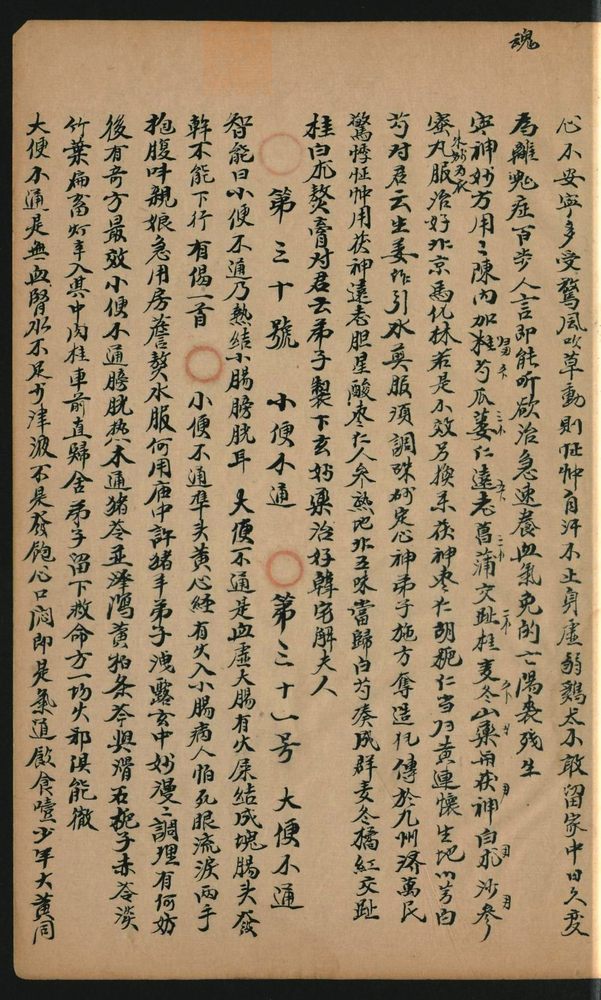 魂
心不安寧多受驚風吹草動則怔忡自汗不止身虛弱鷄犬不敢留家中日久变
為離鬼症百步人言即能听欲治急速養血氣免的亡陽喪残生
安神妙方用二陳内加桂芍瓜蔞仁遠志菖蒲交趾桂麦冬山藥雨茯神白朮沙參
蜜丸服治好北京馬化林若是不效另換柔茯神枣仁胡桅仁当归黄連懷生地川芎白
硃砂為衣
芍对君云生姜作引水奠服須調硃砂定心神弟子施方奪造化傳於九州濟萬民
驚悸怔忡用茯神遠志胆星酸枣仁人參熟地北五味當歸白芍湊成群麦冬橘紅交趾
桂白朮熬膏对君云弟子製下玄妙藥治好韓宅解夫人
第三十號 小便不通 第三十一号 大便不通
智能曰小便不通乃熱結小腸膀胱耳 大便不通是血虛大腸有火屎結成塊腸头發
幹不能下行有偈一首 小便不通準头黄心經有火入小腸病人怕死眼流淚两手
抱腹呌親娘急用房簷熬水服何用庙中許猪羊弟子洩露玄中妙漫漫調理有何妨
後有奇方最效小便不通膀胱热木通猪苓並澤瀉黄柏条芩與滑石桅子赤苓淡
竹葉萹蓄灯草入其中肉桂車前直歸舍弟子留下救命方一切火邪俱能徹
大便不通是無血腎水不足少津液不是發飽心口悶即是氣道飲食噎少年大黄同